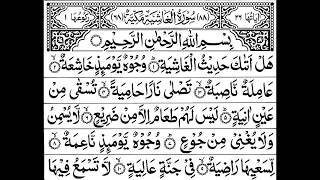 اٰیاتها ٢٦ (٨٨) سُوْرَةُ الْغَاشِيَةِ مَكِّيَّةٌ (٦٨) رکوعها ١
بِسْمِ اللّٰهِ الرَّحْمٰنِ الرَّحِيْمِ
هَلْ اَتٰىكَ حَدِيْثُ الْغَاشِيَةِ ۝١ وُجُوْهٌ يَّوْمَئِذٍ خَاشِعَةٌ ۝٢
عَامِلَةٌ نَّاصِبَةٌ ۝٣ تَصْلٰى نَارًا حَامِيَةً ۝٤ تُسْقٰى مِنْ
عَيْنٍ اٰنِيَةٍ ۝٥ لَيْسَ لَهُمْ طَعَامٌ اِلَّا مِنْ ضَرِيْعٍ ۝٦ لَّا يُسْمِنُ
وَلَا يُغْنِيْ مِنْ جُوْعٍ ۝٧ وُجُوْهٌ يَّوْمَئِذٍ نَّاعِمَةٌ ۝٨
لِّسَعْيِهَا رَاضِيَةٌ ۝٩ فِيْ جَنَّةٍ عَالِيَةٍ ۝١٠ لَّا تَسْمَعُ فِيْهَا